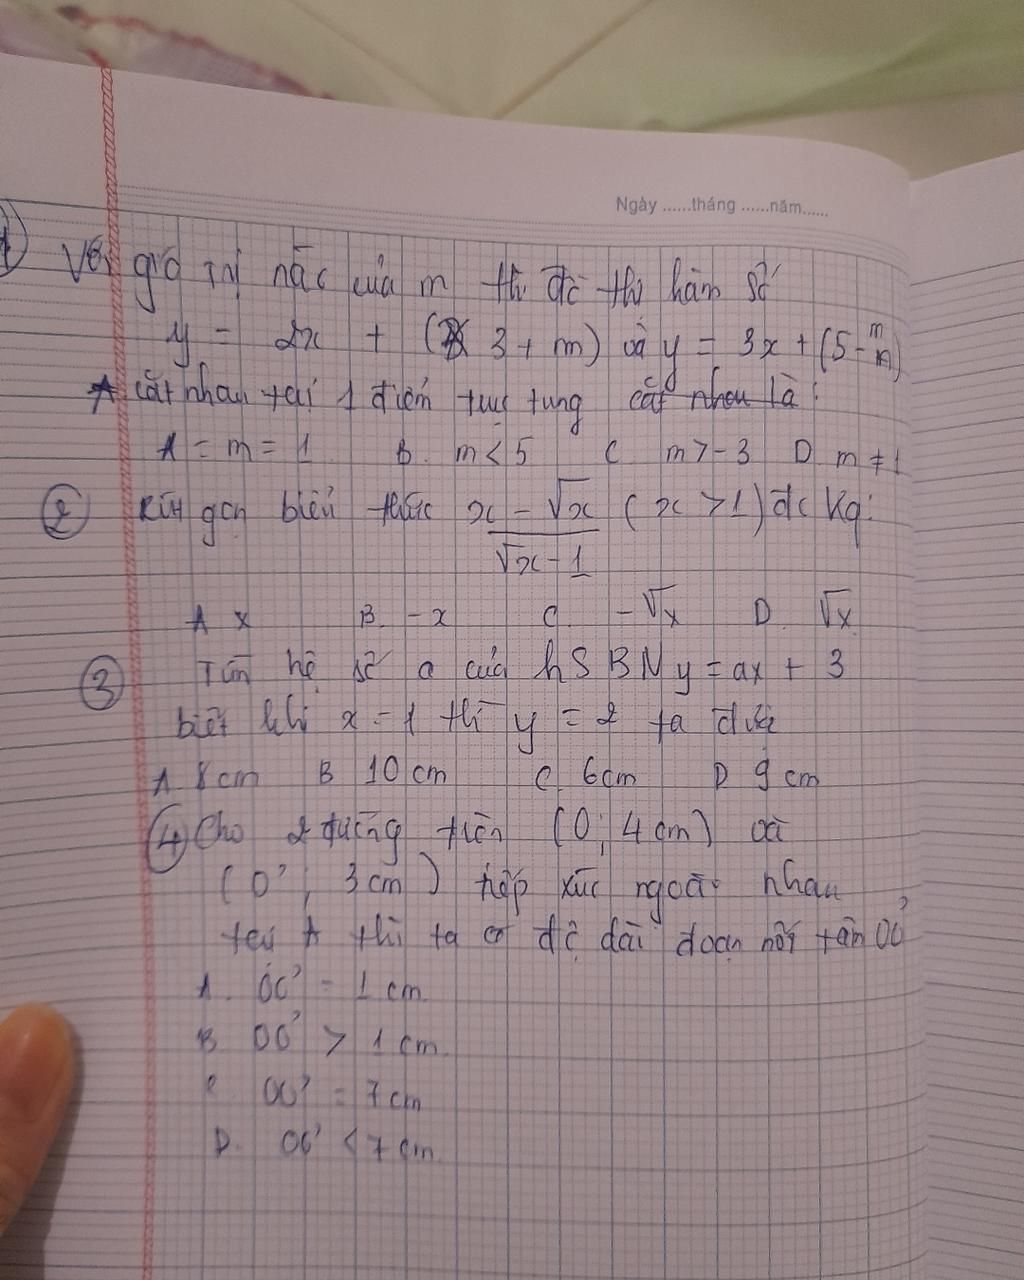 Ngày ......tháng ......năm......
1 Với giá trị nào của m thì đồ thị hàm số
y = 2x + (3 + m) và y = 3x + (5 - m)
cắt nhau tại 1 điểm trục tung cắt nhau là:
A = m = 1 B. m < 5 C m > -3 D m ≠ 1
2 Rút gọn biểu thức x - √x / √x - 1 ( x > 1 ) đc Kq:
A x B. - x C. - √x D. √x
3 Tìm hệ số a của hSBN y = ax + 3
biết khi x = 1 thì y = 2 ta được
A. 8cm B 10 cm C. 6cm D 9 cm
4 Cho 2 đường tròn (O; 4 cm) và
(O'; 3 cm) tiếp xúc ngoài nhau
tại A thì ta có độ dài đoạn nối tâm OO'
A. OO' = 1 cm
B OO' > 1 cm.
C OO' = 7 cm
D. OO' < 7 cm